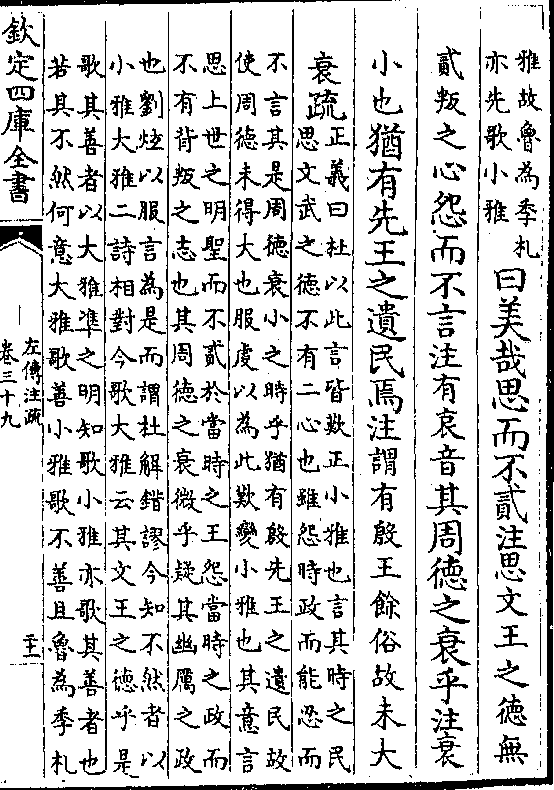 雅故魯為季札
亦先歌小雅
曰美哉思而不貳注思文王之德無
貳叛之心怨而不言注有哀音其周德之衰乎注衰
小也猶有先王之遺民焉注謂有殷王餘俗故未大
衰疏
正義曰杜以此言皆歎正小雅也言其時之民
思文武之德不有二心也雖怨時政而能忍而
不言其是周德衰小之時乎猶有殷先王之遺民故
使周德未得大也服虔以為此歎變小雅也其意言
思上世之明聖而不貳於當時之王怨當時之政而
不有背叛之志也其周德之衰微乎疑其幽厲之政
也劉炫以服言為是而謂杜解錯謬今知不然者以
小雅大雅二詩相對今歌大雅云其文王之德乎是
歌其善者以大雅凖之明知歌小雅亦歌其善者也
若其不然何意大雅歌善小雅歌不善且魯為季札
欽定四庫全書
左傳注疏
卷三十九